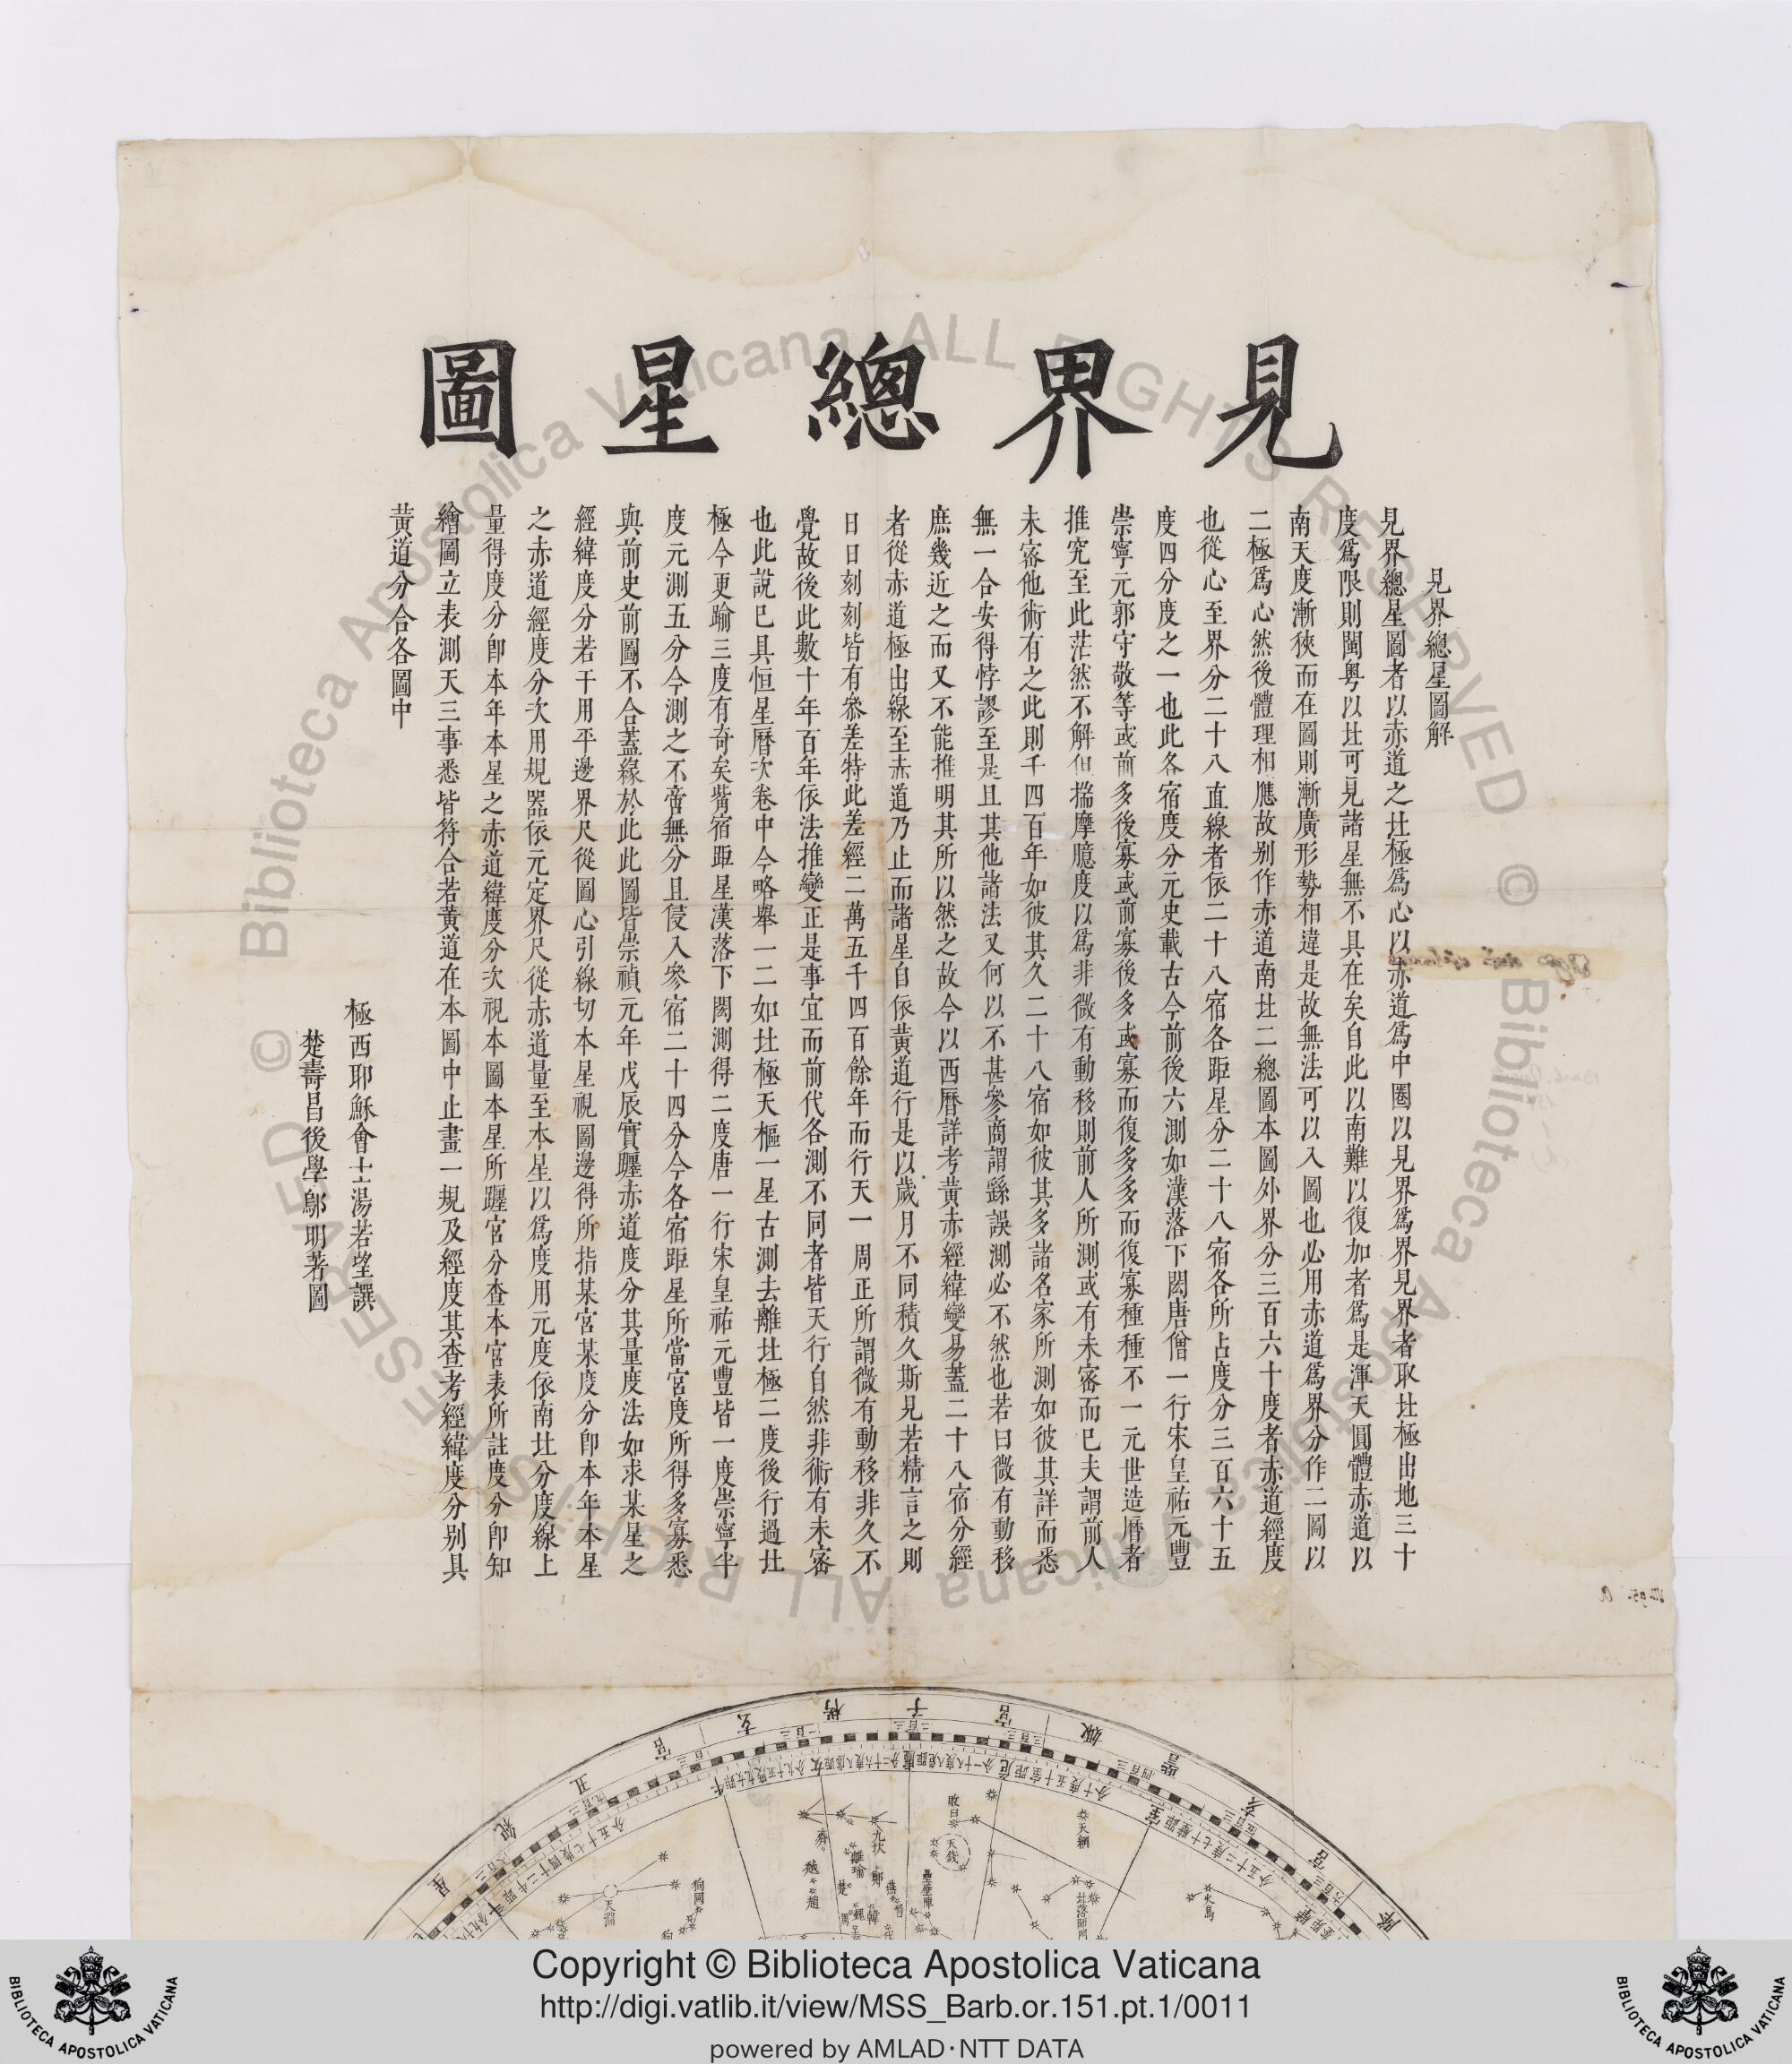 見界總星圖
見界總星圖解
見界總星圖者以赤道之北極爲心以赤道爲中圈以見界爲界見界者取北極出地三十
度爲限則閩粤以北可見諸星無不具在矣自此以南難以復加者爲是渾天圓體赤道以
南天度漸狹而在圖則漸廣形勢相違是故無法可以入圖也必用赤道爲界分作二圖以
二極爲心然後體理相應故别作赤道南北二總圖本圖外界分三百六十度者赤道經度
也從心至界分二十八直線者依二十八宿各距星分二十八宿各所占度分三百六十五
度四分度之一也此各宿度分元史載古今前後六測如漢落下閎唐僧一行宋皇祐元豐
崇寧元郭守敬等或前多後寡或前寡後多或寡而復多多而復寡種種不一元世造曆者
推究至此茫然不解但揣摩臆度以爲非微有動移則前人所測或有未密而已夫謂前人
未密他術有之此則千四百年如彼其久二十八宿如彼其多諸名家所測如彼其詳而悉
無一合安得悖謬至是且其他諸法又何以不甚參商謂繇誤測必不然也若曰微有動移
庶幾近之而又不能推明其所以然之故今以西曆詳考黄赤經緯變易蓋二十八宿分經
者從赤道極出線至赤道乃止而諸星自依黄道行是以歲月不同積久斯見若精言之則
日日刻刻皆有叅差特此差經二萬五千四百餘年而行天一周正所謂微有動移非久不
覺故後此數十年百年依法推變正是事宜而前代各測不同者皆天行自然非術有未密
也此説已具恒星曆次卷中今略舉一二如北極天樞一星古測去離北極二度後行過北
極今更踰三度有奇矣觜宿距星漢落下閎測得二度唐一行宋皇祐元豐皆一度崇寧半
度元測五分今測之不啻無分且侵入參宿二十四分今各宿距星所當宮度所得多寡悉
與前史前圖不合蓋緣於此此圖皆崇禎元年戊辰實躔赤道度分其量度法如求某星之
經緯度分若干用平邊界尺從圖心引線切本星視圖邊得所指某宮某度分卽本年本星
之赤道經度分次用規器依元定界尺從赤道量至本星以爲度用元度依南北分度線上
量得度分卽本年本星之赤道緯度分次視本圖本星所躔宮分查本宮表所註度分卽知
繪圖立表測天三事悉皆符合若黄道在本圖中止畫一規及經度其查考經緯度分别具
黄道分合各圖中
極西耶穌會士湯若望譔
楚壽昌後學鄔明著圖
星
紀
丑
宮
玄
枵
子
宮
娵
訾
亥
宮
降
天淵
狗國
齊
越
趙
九坎
離瑜
鄭
楚
周
魏
韓
燕
敗臼
天錢
壘壁陣
天綱
北落師門
火鳥
Copyright © Biblioteca Apostolica Vaticana
http://digi.vatlib.it/view/MSS_Barb.or.151.pt.1/0011
powered by AMLAD·NTT DATA
BIBLIOTECA APOSTOLICA VATICANA
BIBLIOTECA APOSTOLICA VATICANA
© Biblioteca Apostolica Vaticana ALL RIGHTS RESERVED
© Biblioteca Apostolica Vaticana ALL RIGHTS RESERVED